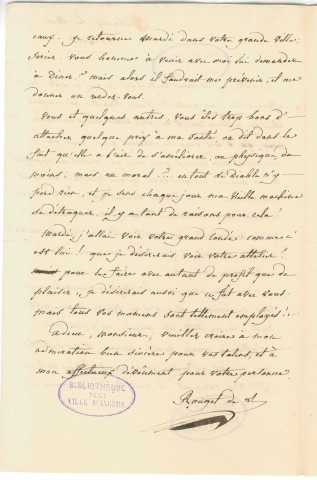 eaux. je retourne mardi dans votre grande ville.
seriez vous homme à venir avec moi lui demander
à Diner? mais alors il faudrait me prevenir, et me
donner un rendez-vous.
Vous et quelques autres, vous êtes trop bons d'
attacher quelque prix à ma santé, on dit dans le
fait qu'elle a l'air de s'améliorer, au physique, du
moins, mais au moral?.. en tout le Diable n'y
perd rien, et je sens chaque jour ma vieille machine
se détraquer. il y a tant de raisons pour cela!
Mardi j'allai voir votre grand Condé. comme c'
est lui! que je désirerais voir votre attelier!
pour le faire avec autant de profit que de
plaisir, je désirerais aussi que ce fut avec vous.
mais tous vos momens sont tellement employés!..
adieu, monsieur; veuillez croire à mon
admiration bien sincère pour vos talens, et à
mon affectueux dévoûment pour votre personne
Rouget de L
BIBLIOTHÈQUE
DE LA
VILLE D'ANGERS